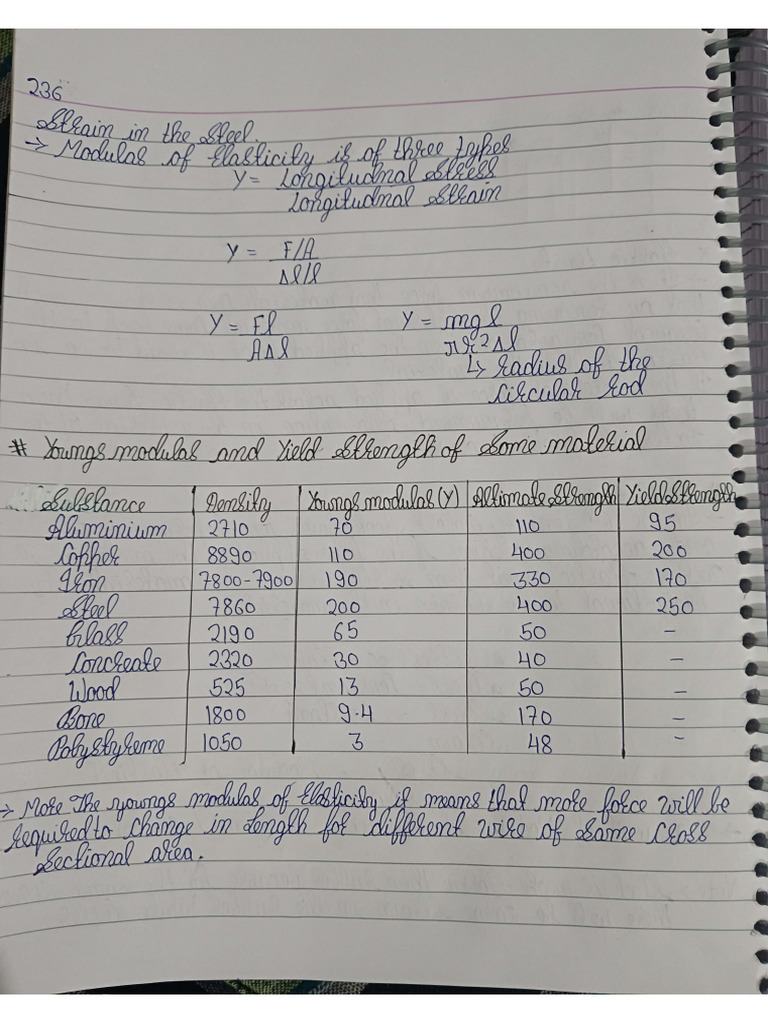 236
Strain in the Steel.
→ Modulas of Elasticity is of three types
Y = Longitudnal Stress
Longitudnal Strain
Y = F/A
Δl/l
Y = Fl Y = mgl
AΔl πr²Δl
↳ radius of the
circular rod
# Youngs modulas and Yield Strength of Some material
Substance Density Youngs modulas (Y) Altimate Strength Yield Strength
Aluminium 2710 70 110 95
Copper 8890 110 400 200
Iron 7800-7900 190 330 170
Steel 7860 200 400 250
Glass 2190 65 50 -
Concreate 2320 30 40 -
Wood 525 13 50 -
Bone 1800 9.4 170 -
Polystyreme 1050 3 48 -
→ More The youngs modulas of Elasticity if means that more force will be
required to change in length for different wire of Same Cross
Sectional area.